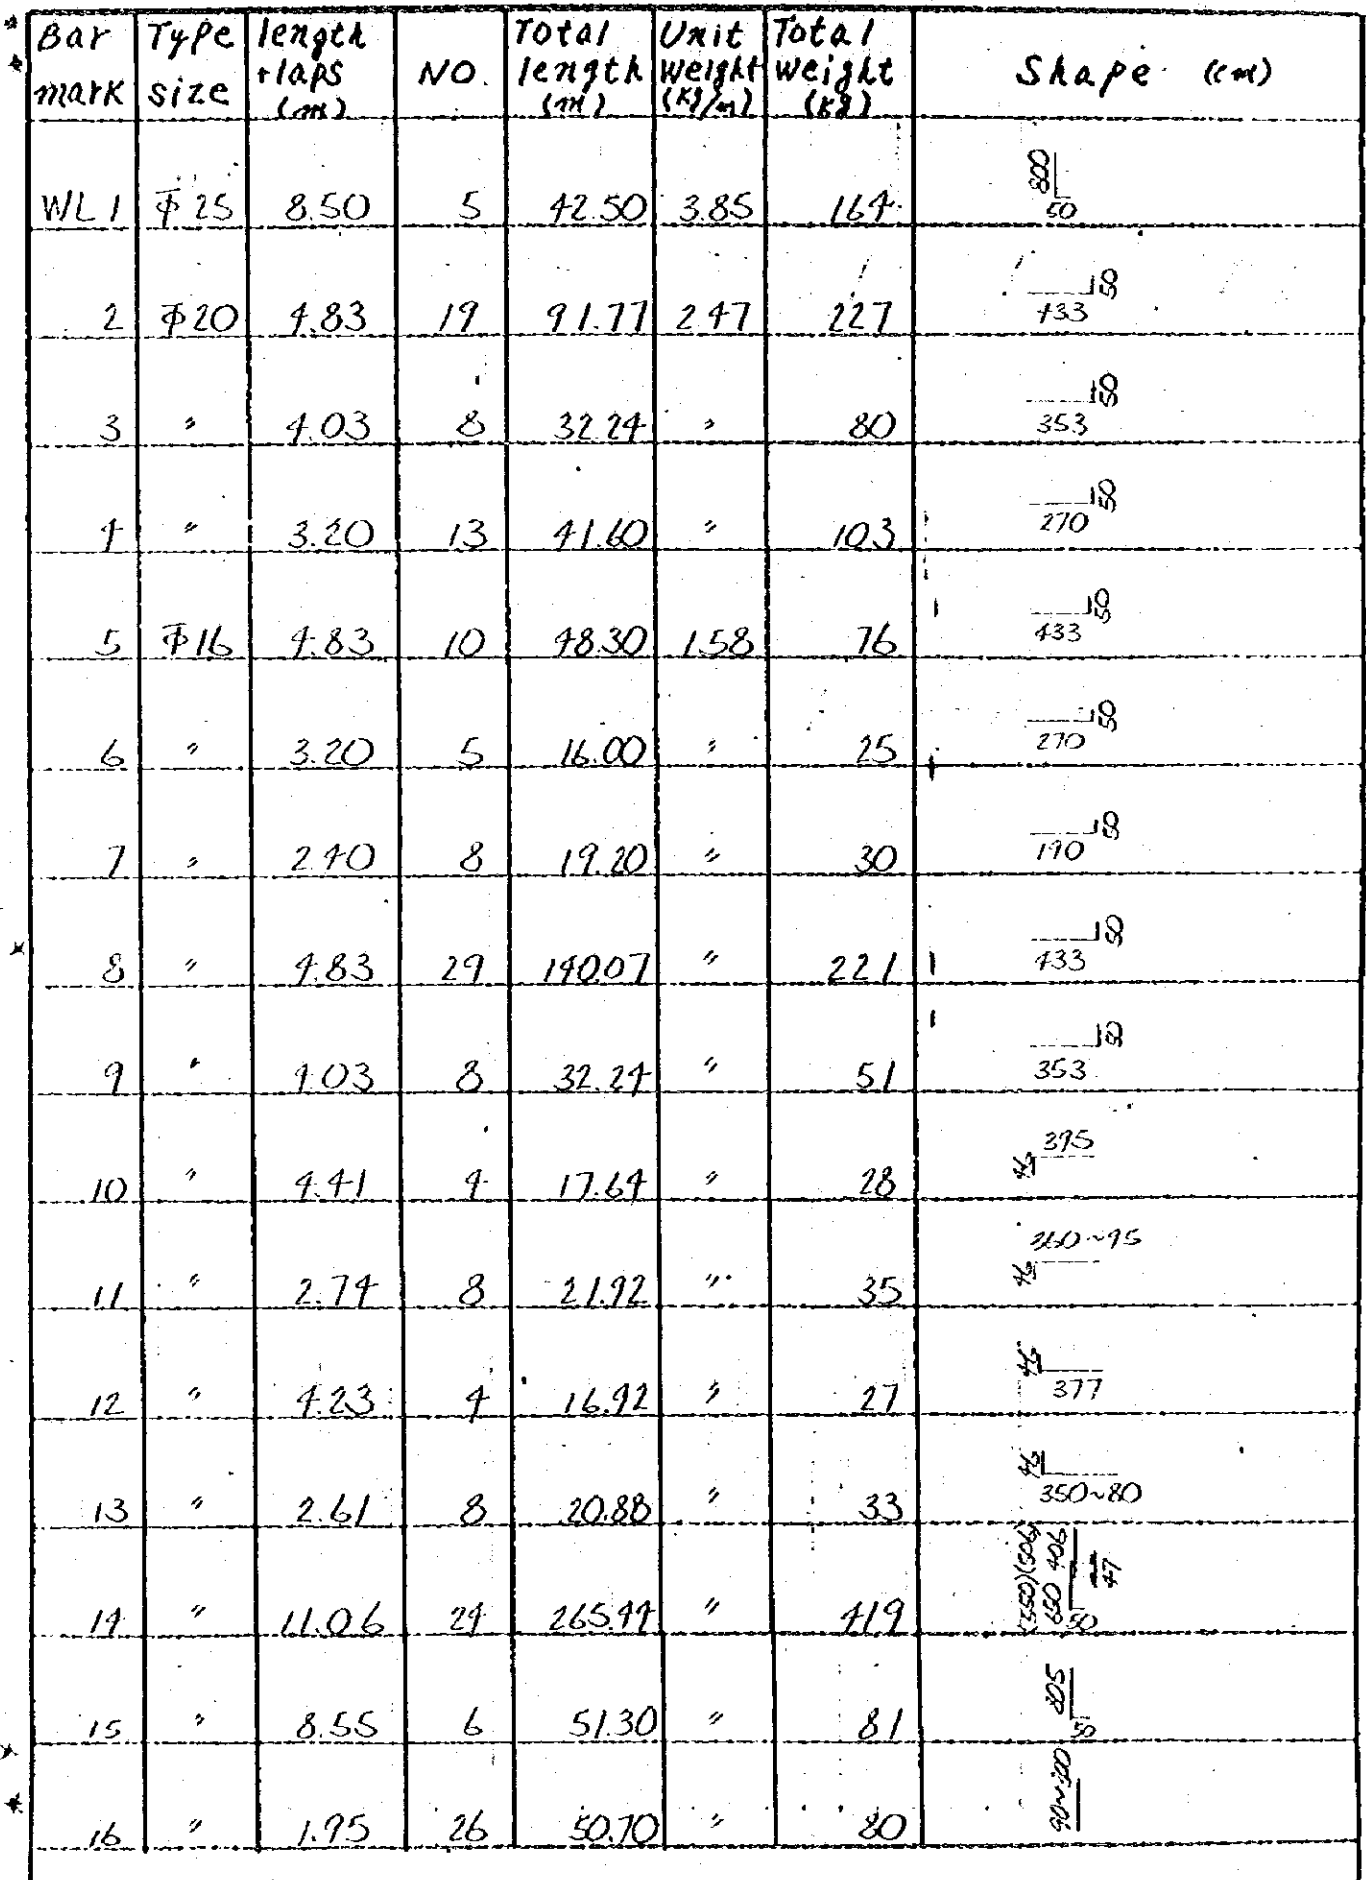 Bar mark | Type size | length +laps (m) | NO. | Total length (m) | Unit weight (kg/m) | Total weight (kg) | Shape (cm)
WL1 | Φ25 | 8.50 | 5 | 42.50 | 3.85 | 164 | 800 50
2 | Φ20 | 4.83 | 19 | 91.77 | 2.47 | 227 | 433 50
3 | " | 4.03 | 8 | 32.24 | " | 80 | 353 50
4 | " | 3.20 | 13 | 41.60 | " | 103 | 270 50
5 | Φ16 | 4.83 | 10 | 48.30 | 1.58 | 76 | 433 50
6 | " | 3.20 | 5 | 16.00 | " | 25 | 270 50
7 | " | 2.40 | 8 | 19.20 | " | 30 | 190 50
8 | " | 4.83 | 29 | 140.07 | " | 221 | 433 50
9 | " | 4.03 | 8 | 32.24 | " | 51 | 353 50
10 | " | 4.41 | 4 | 17.64 | " | 28 | 46 395
11 | " | 2.74 | 8 | 21.92 | " | 35 | 46 360~95
12 | " | 4.23 | 4 | 16.92 | " | 27 | 46 377
13 | " | 2.61 | 8 | 20.88 | " | 33 | 46 350~80
14 | " | 11.06 | 24 | 265.44 | " | 419 | (550)(506) 650 406 47 50
15 | " | 8.55 | 6 | 51.30 | " | 81 | 805 50
16 | " | 1.95 | 26 | 50.70 | " | 80